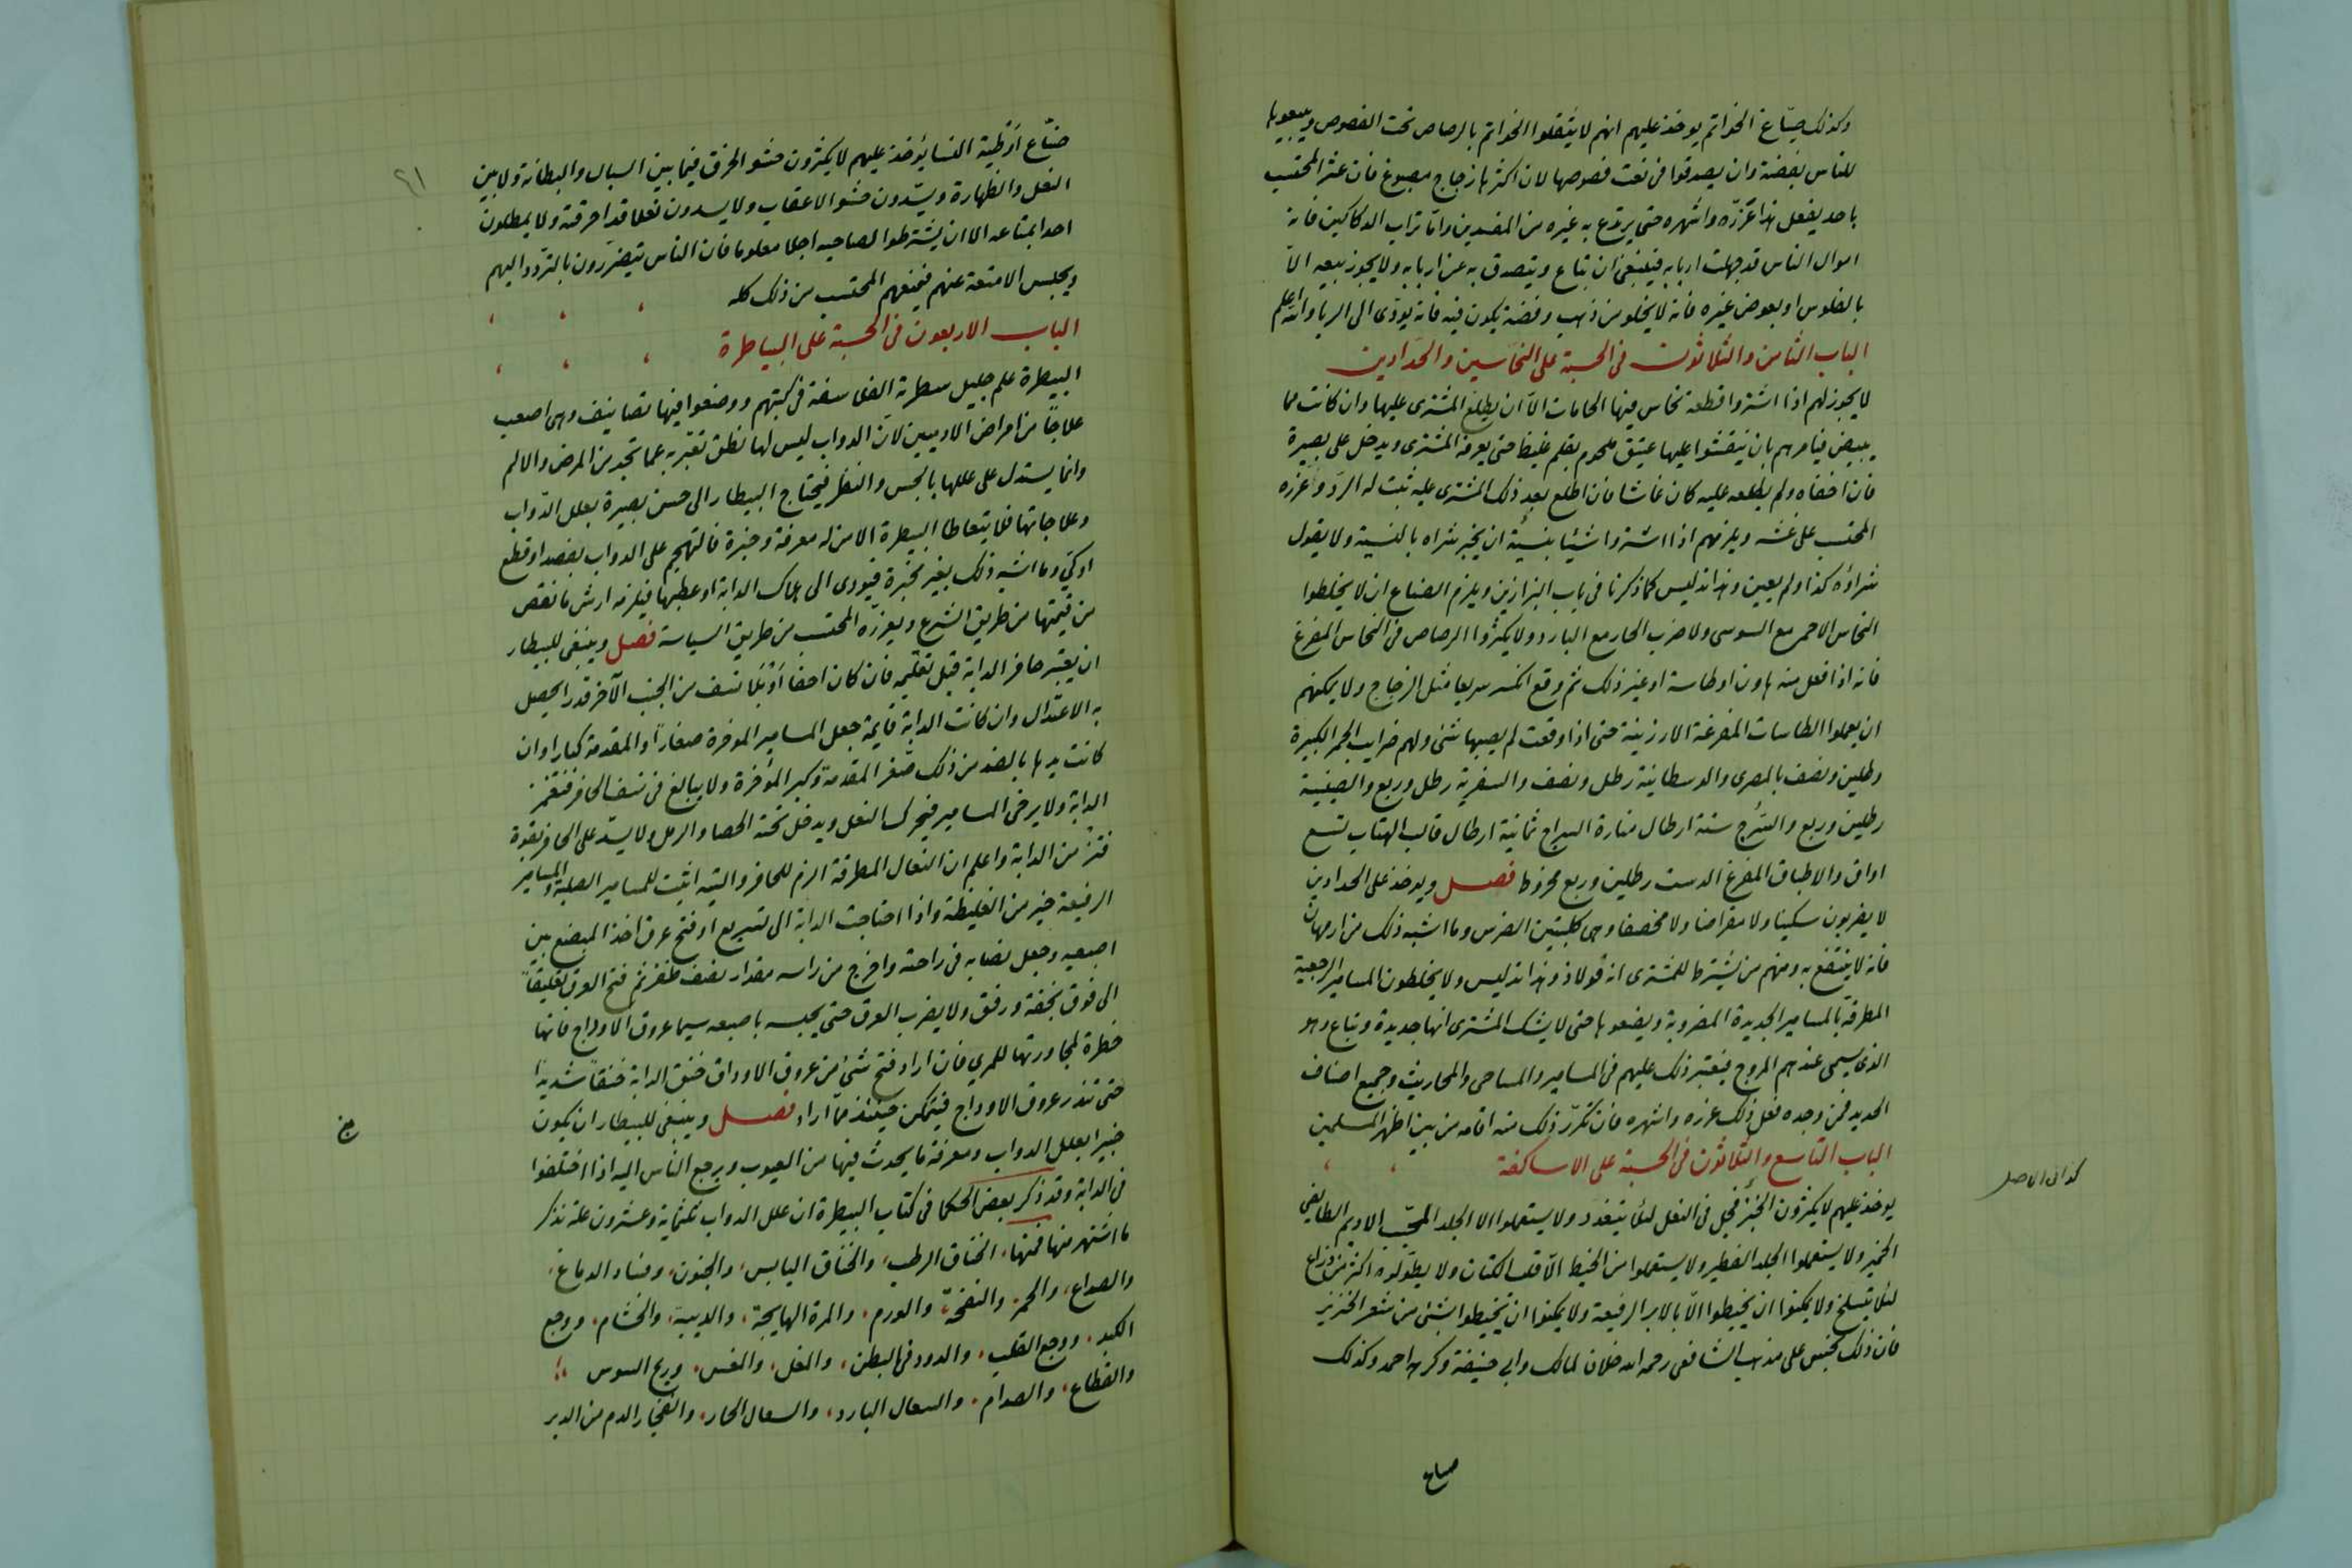 وكذلك صيّاغ الخواتم يوخذ عليهم انهم لا يثقلوا الخواتم بالرصاص تحت الفصوص ويبيعوها
للناس بفضة وان يصدقوا فى نعت فصوصها لان اكثرها زجاج مصبوغ فان عثر المحتسب
باحد يفعل هذا عزّره واشهره حتى يرتدع به غيره من المفسدين وامّا تراب الدكاكين فانه
اموال الناس قد جهلت اربابه فينبغى ان تباع ويتصدق به عن اربابه ولا يجوز بيعه الاّ
بالفلوس او بعوض غيره فانه لا يخلو من ذهب وفضة يكون فيه فانه يودّى الى الربا والله اعلم
الباب الثامن والثلاثون فى الحسبة على النحّاسين والحدّادين
لا يجوز لهم اذا اشتروا قطعه نحاس فيها لحامات الاّ ان يطلع المشترى عليها وان كانت مما
يبيض فيامرهم بان ينقشوا عليها عتيق ملحوم بقلم غليظ حتى يعرفه المشترى ويدخل على بصيرة
فان اخفاه ولم يطلعه عليه كان غاشا فان اطلع بعد ذلك المشترى عليه ثبت له الردّ وعزره
المحتسب على غشه ويلزمهم اذا اشتروا شيئا بنسيئة ان يخبر بشراه بالنسية ولا يقول
شراؤه كذا ولم يعين وهذا تدليس كما ذكرنا فى باب البزازين ويلزم الصناع ان لا يخلطوا
النحاس الاحمر مع السوسى ولا ضرب الحار مع البارد ولا يكثروا الرصاص فى النحاس المفرغ
فانه اذا فعل منه هاون او طاسة او غير ذلك ثم وقع انكسر سريعا مثل الزجاج ولا يمكنهم
ان يعملوا الطاسات المفرغة الارزنية حتى اذا وقعت لم يصبها شئ ولهم ضرايب الجمر الكبيرة
رطلين ونصف بالمصرى والوسطانية رطل ونصف والسفرية رطل وربع والصينية
رطلين وربع والسُّرج ستة ارطال منارة السراج ثمانية ارطال قالب الهتاب تسع
اواق والاطباق المفرغ الدست رطلين وربع مخروط فصل ويوخذ على الحدادين
لا يضربون سكينا ولا مقراضا ولا مخصفا وهى كلبتين الضرس وما اشبه ذلك من ارمهان
فانه لا ينتفع به ومنهم من يشترط للمشترى انه فولاذ وهذا تدليس ولا يخلطون المسامير الرجعية
المطرقة بالمسامير الجديدة المضروبة ويضعوها حتى لا يشك المشترى انها جديدة وتباع وهو
الذى يسمى عندهم المروج فيعتبر ذلك عليهم فى المسامير والمساحى والمحاريث وجميع اصناف
الحديد فمن وجده فعل ذلك عزره واشهره فان تكرّر ذلك منه اقامه من بين اظهر المسلمين
الباب التاسع والثلاثون فى الحسبة على الاساكفة
يوخذ عليهم لا يكثرون فى النعل لئلا ولا يستعملوا الا الجلد الاديم الطايفى
الخمير ولا يستعملوا الجلد الفطير ولا يستعملوا من الخيط الاّ قلب الكتان ولا يطوّلوه اكثر من ذراع
لئلا يتسلخ ولا يمكنوا ان يخيطوا الاّ بالابر الرفيعة ولا يمكنوا ان يخيطوا بشئ من شعر الخنزير
فان ذلك نجس على مذهب الشافعى رحمه الله خلاف لمالك وابى حنيفة وكرهه احمد وكذلك
صناع
كذا فى الاصل
٦١
صنّاع اوطية النسا يؤخذ عليهم لا يكثرون حشو الخرق فيما بين السبال والبطانه ولا بين
النعل والظهارة ويشدّون حشو الاعقاب ولا يسدون نعلا قد احرقته ولا يمطلون
احدا بمتاعه الا ان يشترطوا لصاحبه اجلا معلوما فان الناس يتضررون بالتردد اليهم
وبحبس الامتعة عنهم فيمنعهم المحتسب من ذلك كله
الباب الاربعون فى الحسبة على البياطرة
البيطرة علم جليل سطرته الفلاسفة فى كتبهم ووضعوا فيها تصانيف وهى اصعب
علاجاً من امراض الادميين لان الدواب ليس لها نطق تعبّر به عما تجد من المرض والالم
وانما يستدل على عللها بالجس والنظر فيحتاج البيطار الى حسن بصيرة بعلل الدّواب
وعلاجاتها فلا يتعاطا البيطرة الا من له معرفة وخبرة فالتهجم على الدواب بفصد او قطع
او كىّ وما اشبه ذلك بغير مخبرة فيودى الى هلاك الدابة او عطبها فيلزمه ارش ما نقص
من قيمتها من طريق الشرع ويعزّره المحتسب من طريق السياسة فصل وينبغى للبيطار
ان يعتبر حافر الدابة قبل تقليمه فان كان احفا او نسف من الجنب الآخر قدرا يحصل
به الاعتدال وان كانت الدابة قايمة جعل المسامير الموخرة صغارا والمقدمة كبارا وان
كانت يدها بالضد من ذلك صغّر المقدمة وكبر المؤخرة ولا يبالغ فى نسف الحافر فتغمز
الدابة ولا يرخى المسامير فيحرك النعل ويدخل تحته الحصا والرمل ولا يشدّ على الحافر بقوة
فتزمن الدابة واعلم ان النعال المطرقة الزم للحافر والليّنه اثبت للمسامير الصلبة والمسامير
الرفيعة خير من الغليظة واذا احتاجت الدابة الى تسريح او فتح عرق اخذ المبضع بين
اصبعيه وجعل نصابه فى راحته واخرج من راسه مقدار نصف ظفر ثم فتح العرق تعليقاً
الى فوق بخفة ورفق ولا يضرب العرق حتى يحبسه باصبعه سيما عروق الاوداج فانها
خطرة لمجاورتها للمري فان اراد فتح شئ من عروق الاوداق خنق الدابة خنقاً شديداً
حتى تندر عروق الاوداج فيتمكن حينئذ ممّا اراد فصل وينبغى للبيطار ان يكون
خبيرا بعلل الدواب ومعرفة ما يحدث فيها من العيوب ويرجع الناس اليه اذا اختلفوا
فى الدابة وقد ذكر بعض الحكما فى كتاب البيطرة ان علل الدواب ثلثماية وعشرون علة نذكر
ما اشتهر منها فمنها، الخناق الرطب، والخناق اليابس، والجنون، وفساد الدماغ،
والصداع، والحمر، والنفخة، والورم، والمرة الهايجة، والديبة، والخشام، ووجع
الكبد، ووجع القلب، والدود فى البطن، والمغل، والمغس، وريح السوس
والقطاع، والصدام، والسعال البارد، والسعال الحار، وانفجار الدم من الدبر